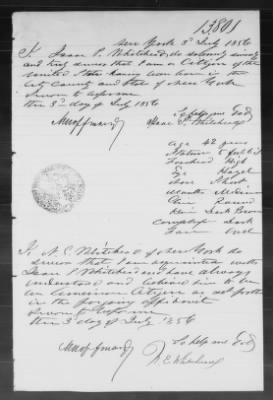 13801
New York 3d July 1856
I Isaac P. Whitehead do solemnly
and truly swear that I am a Citizen of the
United States having been born in the
City County and State of New York
Sworn to before me
this 3d day of July 1856
So help me God
Isaac P. Whitehead
Age 42 years
Stature 5 feet
Forehead High
Eye Hazel
Nose Short
Mouth Medium
Chin Round
Hair Dark Brown
Complexion Dark
Face Oval
I N. C. Whitehead of New York do
swear that I am acquainted with
Isaac P. Whitehead and have always
understood and believe him to be
an American Citizen as set forth
in the foregoing affidavit
Sworn to before me
this 3d day of July 1856
So help me God
N. C. Whitehead